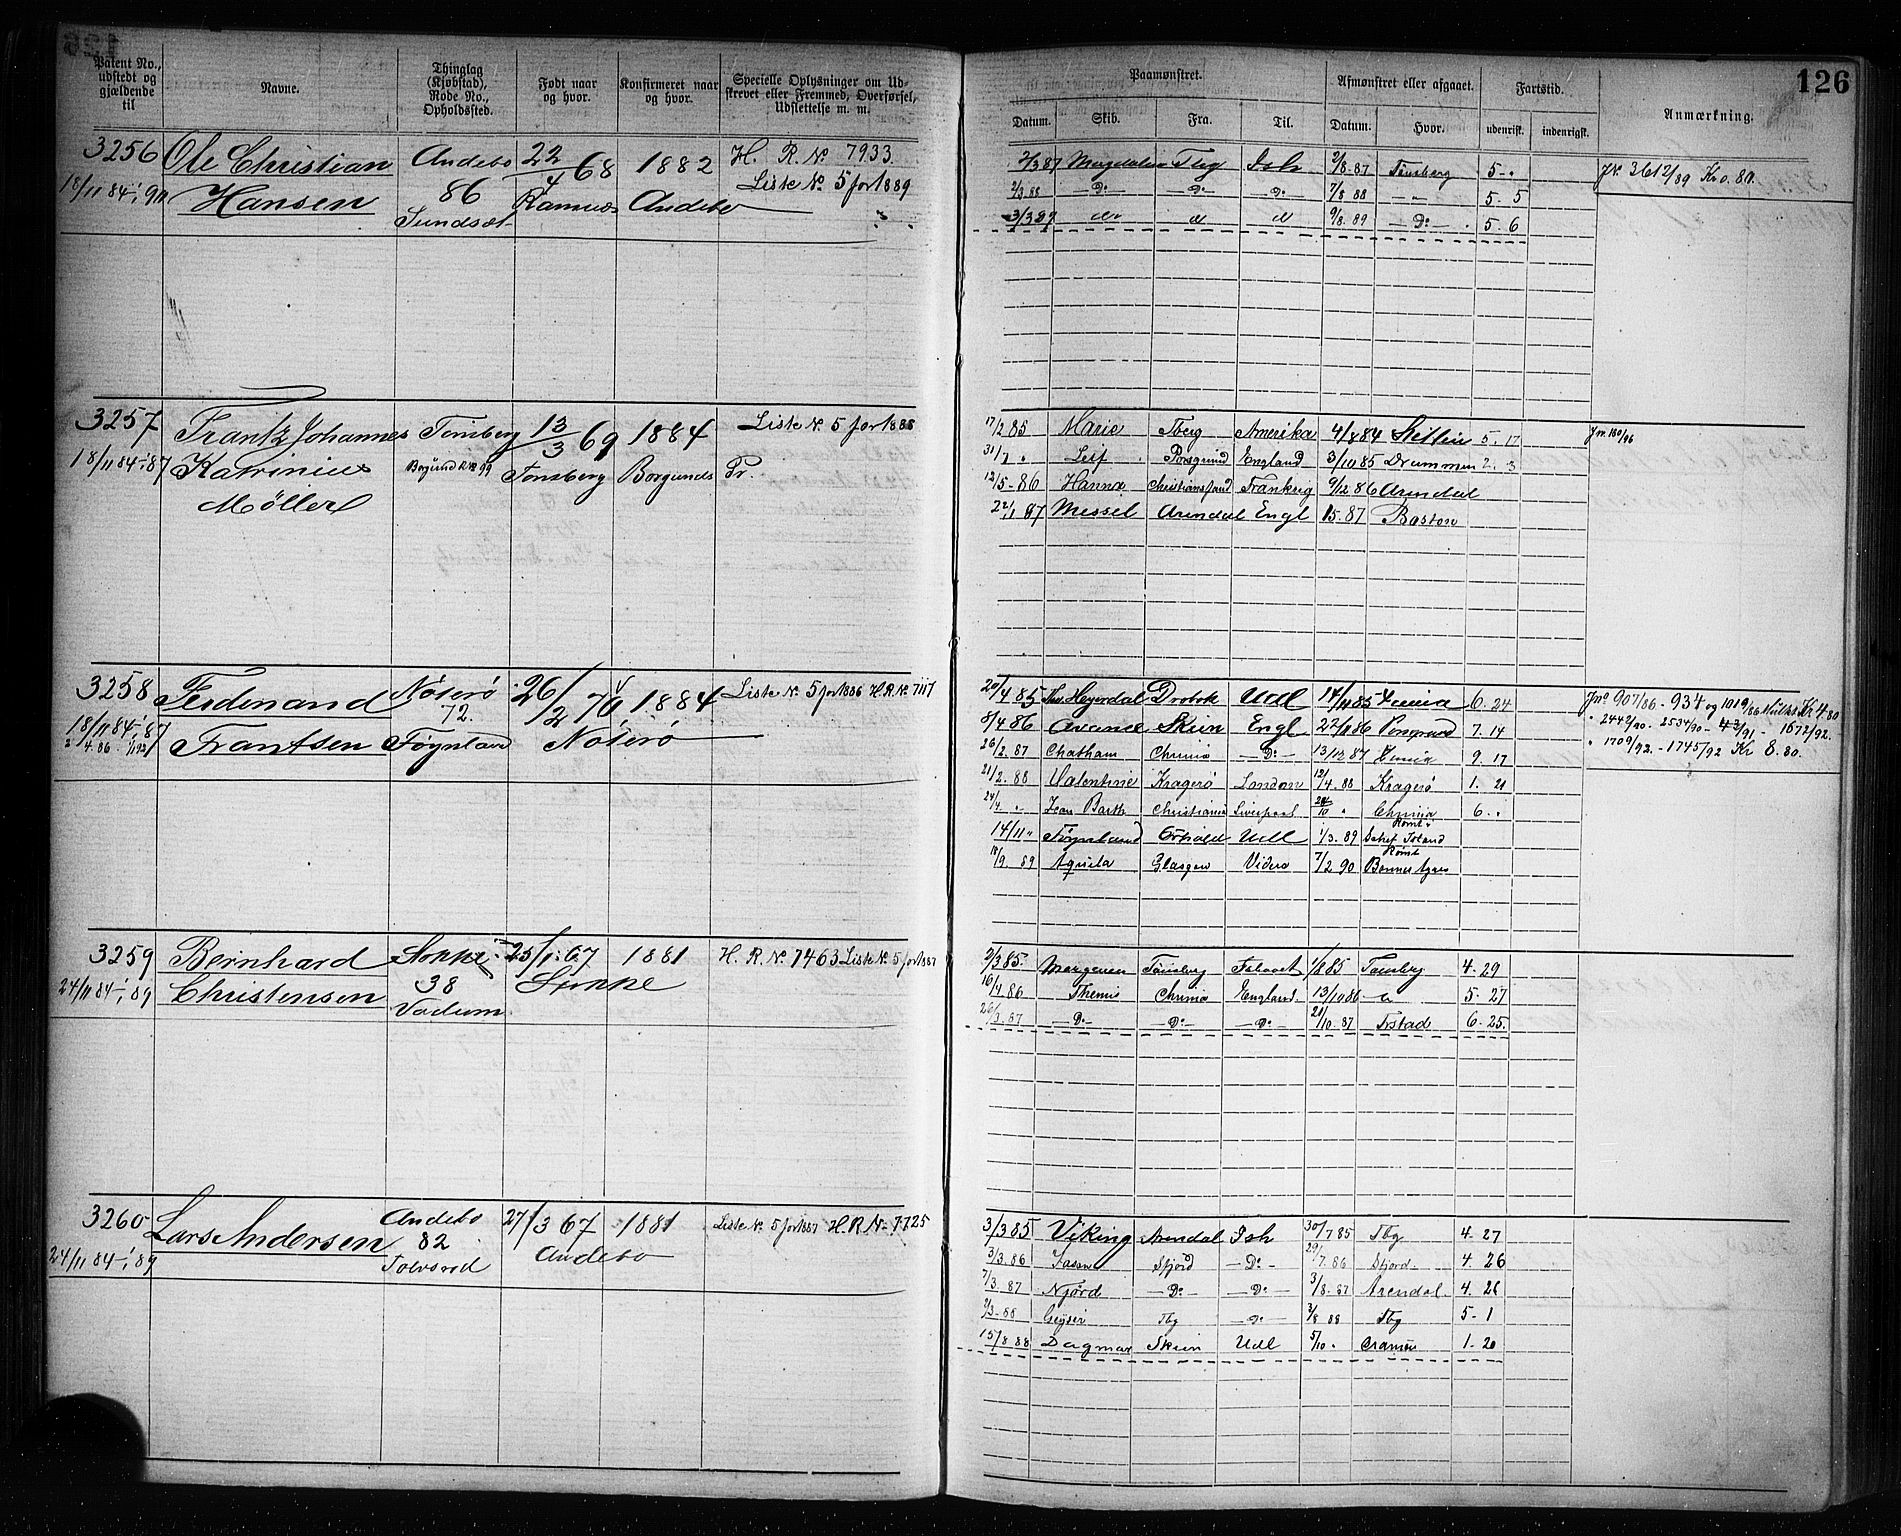 126
Patent No., udstedt og gjældende til
Navne.
Thinglag (Kjøbstad), Rode No., Opholdssted.
Født naar og hvor.
Konfirmeret naar og hvor.
Specielle Oplysninger om Udskrevet eller Fremmed, Overførsel, Udslettelse m. m.
Paamønstret.
Afmønstret eller afgaaet.
Fartstid.
Anmærkning.
Datum. Skib. Fra. Til. Datum. Hvor. udenrigsk. indenrigsk.
3256 Ole Christian Andebo 22/4 68 1882 H. R. No 7933
18/11 84 Hansen 86 Ramnæs Andebo Liste No. 5 for 1889
Sundsæt
2/3 87 Magdalena Tbg Ish 2/8.87 Tønsberg 5 - "
2/3 88 Do Do Do 7/8 88 - " - 5. 5
3/3 89 do d d 9/8. 89 Do 5. 6
J No 3612/89 Kr 0.80
3257 Frantz Johannes Tønsberg 13/3 69 1884 Liste No. 5 for 1888
18/11 84-87 Katrinius 99 Tønsberg Borgunds Pr.
Møller
17/2 85 Marie Tberg Amerika 4/ 84 Stettin 5. 17
31/7 " Leif Porsgrund England 3/10 85 Drammen 2. 3
12/5-86 Hanna Christiansand Frankrig 9/2 86 Arendal
22/1 87 Messel Arendal Engl 15.87 Boston
3258 Ferdinand Nøterø 26/2 70 1884 Liste No. 5 for 1886 H.R. No 7117
18/11 84-87 Frantsen 72. Nøterø
Føynland
20/4 85 Heyerdal Drøbak Udl 14/11 85 6. 24
8/4 86 Avance Skien Engl 22/11 86 Porsgrund 7. 14
26/2. 87 Chatham Chrania Do 13/12 87 9. 17
21/2. 88 Valentine Kragerø London 12/4. 88 Kragerø 1. 21
24/4 " Barth Christiania Liverpool 6. "
14/11 " Føynland Udl 1/3. 89
18/9. 89 Aquila Glasgow 7/2 90 Buenos Ayres
Jno 907/86 - 934 og 1019/86 Mulkt Kr 4.80
" 2442/90 - 2534/90 - 1672/92.
" 1709/92. - 1745/92 Kr 8. 80.
3259 Bernhard Stokke 25/1. 67 1881 H. R. No. 7463 Liste No. 5 for 1887
24/11 84-89 Christensen 38 Stokke
Vadum
2/3 85 Tønsberg 85 Tønsberg 4. 29
16/4. 86 Themis Chrania England. 13/10 86 5. 27
26/3. 87 Do Do Do 21/10. 87 Frstad 6. 25.
3260 Lars Andersen Andebo 27/3 67 1881 Liste No. 5 for 1887 H.R. No 7725
24/11 84-89 82 Andebo
Tolvsrød
3/3 85 Viking Arendal Ish 30/7 85 Tbg 4. 27
3/3. 86 Jasen Sfjord - Do - 29/7. 86 Sfjord 4. 26
7/3. 87 Njørd - Do - Do - 3/8. 87 Arendal 4. 26
2/3-88 Geysir Tbg - Do - 2/8 88 Tbg 5. 1
15/8 88 Dagmar Skien Udl 5/10 " 1. 20